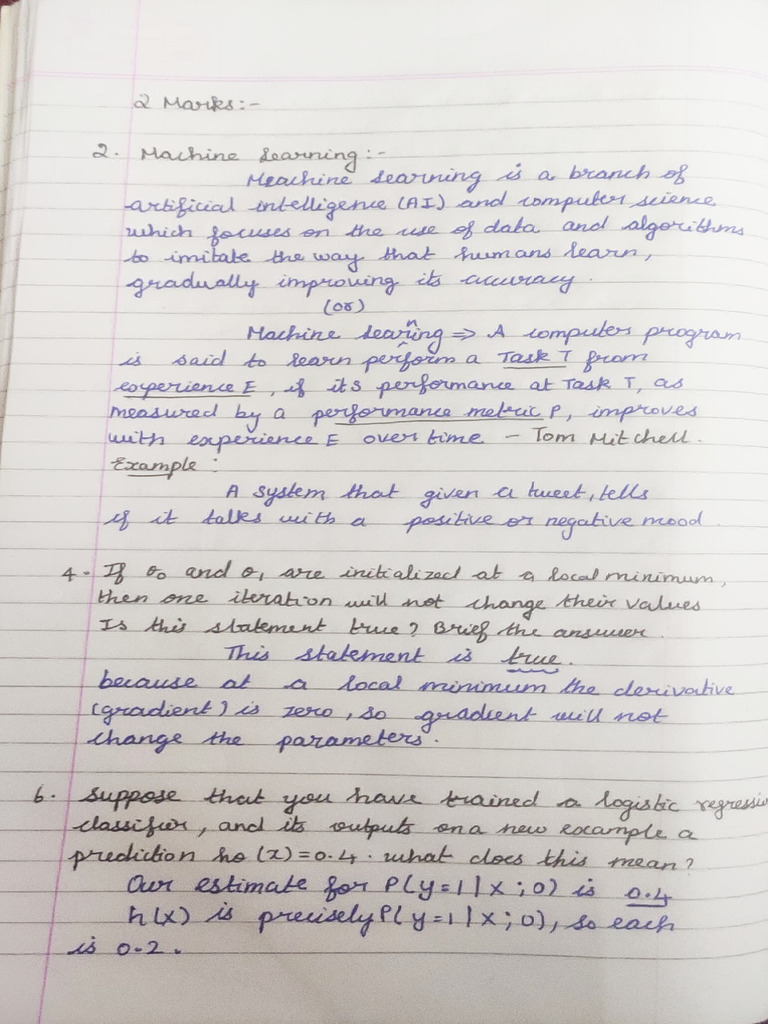 2 Marks:-
2. Machine Learning:-
Meachine Learning is a branch of
artificial intelligence (AI) and computer science
which focuses on the use of data and algorithms
to imitate the way that humans learn,
gradually improving its accuracy.
(or)
Machine Learning => A computer program
is said to learn perform a Task T from
experience E, if its performance at Task T, as
measured by a performance metric P, improves
with experience E over time - Tom Mitchell.
Example:
A system that given a tweet, tells
if it talks with a positive or negative mood.
4. If θ₀ and θ₁ are initialized at a local minimum,
then one iteration will not change their values
Is this statement true? Brief the answer.
This statement is true.
because at a local minimum the derivative
(gradient) is zero, so gradient will not
change the parameters.
6. Suppose that you have trained a logistic regressi
classifier, and its outputs on a new example a
prediction ho (x)=0.4. what does this mean?
Our estimate for P(y=1|x;0) is 0.4
h(x) is precisely P(y=1|x;0), so each
is 0.2.